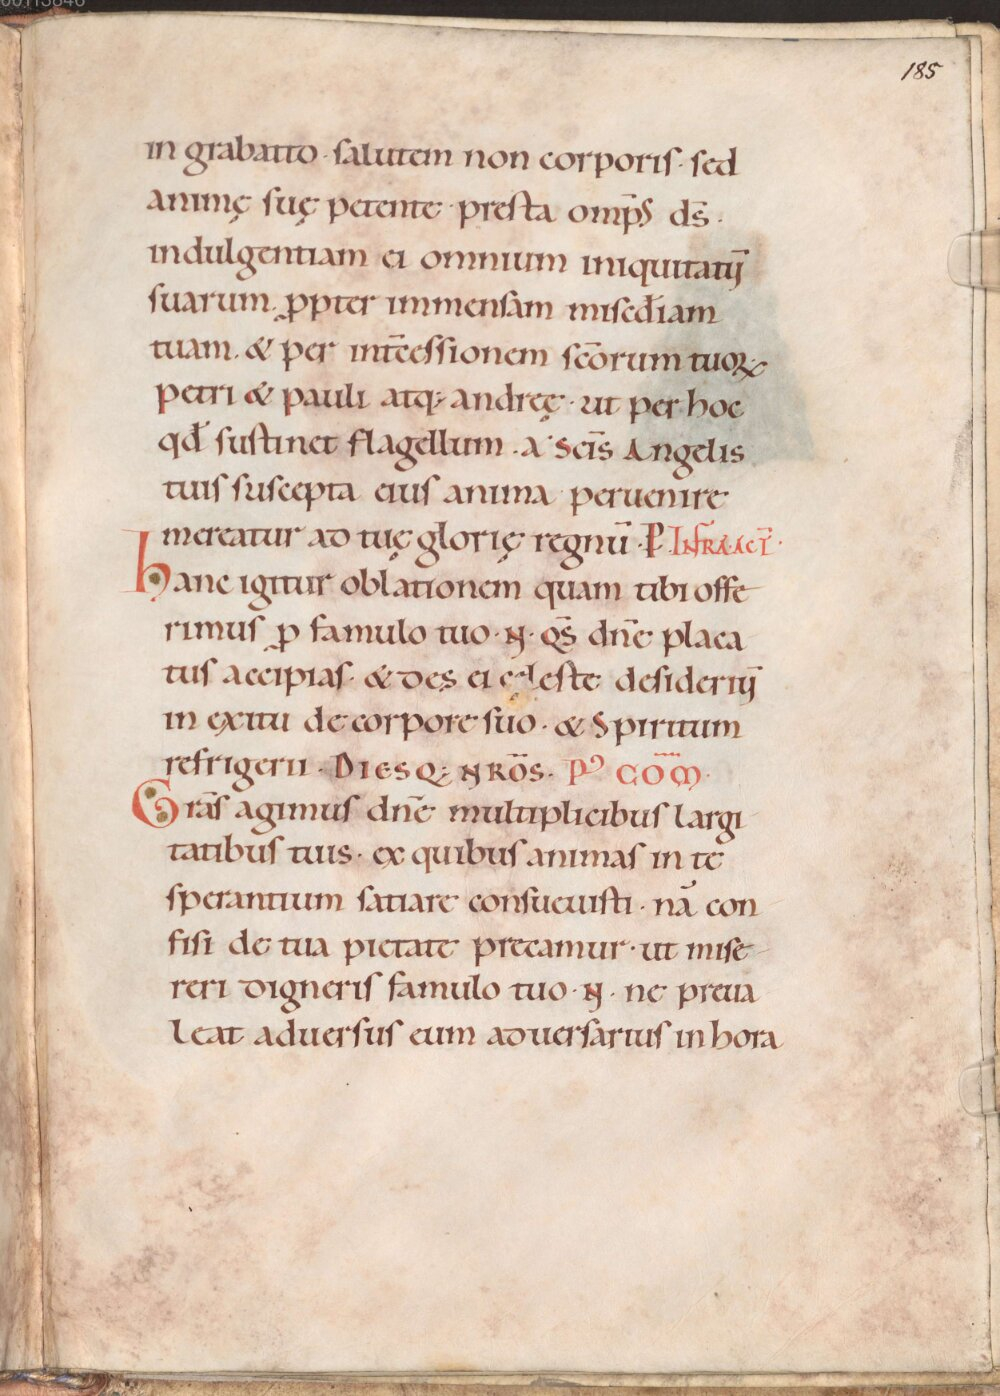 185
in grabatto · salutem non corporis · sed
animę suę petente · presta omp̄s ds̄ ·
indulgentiam ei omnium iniquitatū
suarum · ꝓpter immensam misc̄diam
tuam · & per int̄cessionem sc̄orum tuoꝝ
petri & pauli atq; andreę · ut per hoc
qđ sustinet flagellum · a sc̄is Angelis
tuis suscepta eius anima peruenire
mereatur ad tuę glorię regnū · P · INFRA ACT̄ ·
hanc igitur oblationem quam tibi offe
rimus ꝓ famulo tuo · N · qs̄ dn̄e placa
tus accipias · & des ei cęleste desideriū
in exitu de corpore suo · & Spiritum
refrigerii · DIESQ; NRŌS · P᾽ CŌM̄ ·
Grās agimus dn̄e multiplicibus largi
tatibus tuis · ex quibus animas in te
sperantium satiare consueuisti · nā con
fisi de tua pietate precamur · ut mise
reri digneris famulo tuo · N · ne preua
leat aduersus eum aduersarius in hora